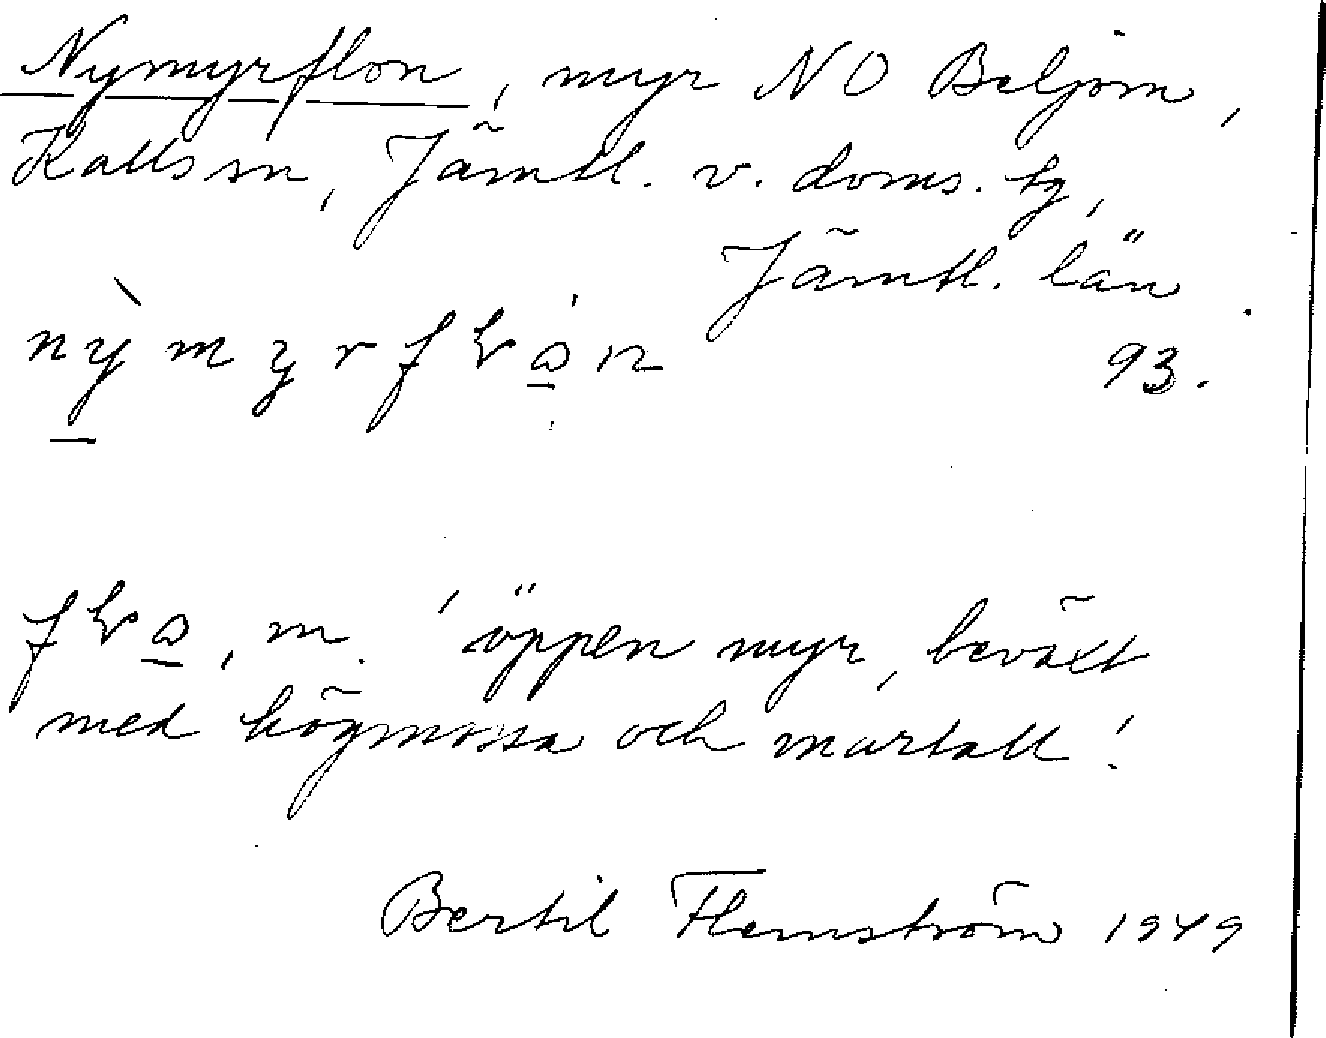 Nymyrflon, myr NO Beljom,
Kalls sn, Jämtl. v. doms. tg,
Jämtl. län.
93.
flo, m. 'öppen myr, beväxt
med högmossa och martall'.
Bertil Flemström 1949